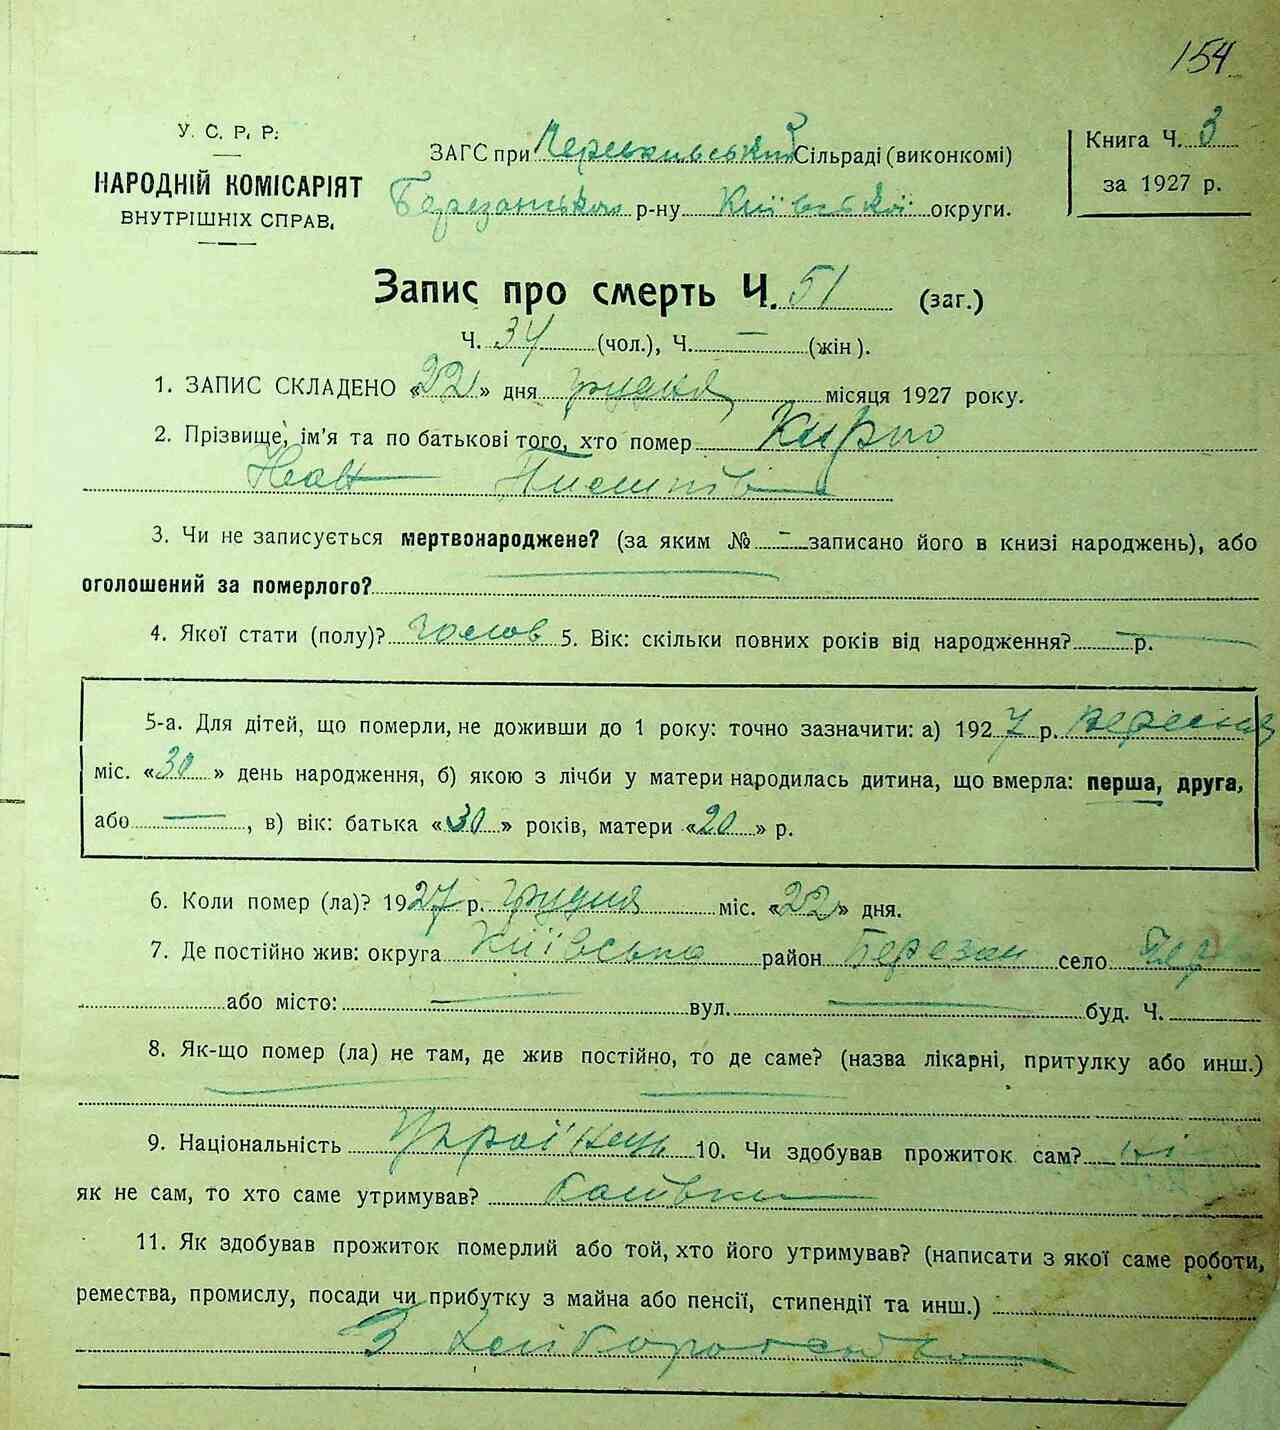 154
У. С. Р. Р.
НАРОДНІЙ КОМІСАРІЯТ
ВНУТРІШНІХ СПРАВ.
ЗАГС при Сільраді (виконкомі)
Березанського р-ну Київської округи.
Книга Ч. 3
за 1927 р.
Запис про смерть Ч. 51 (заг.)
Ч. 34 (чол.), Ч. — (жін).
1. ЗАПИС СКЛАДЕНО «22» дня грудня місяця 1927 року.
2. Прізвище, ім'я та по батькові того, хто помер Кирпо
3. Чи не записується мертвонароджене? (за яким № — записано його в книзі народжень), або
оголошений за померлого?
4. Якої стати (полу)? чолов 5. Вік: скільки повних років від народження? — р.
5-а. Для дітей, що померли, не доживши до 1 року: точно зазначити: а) 1927 р. вересня
міс. «30» день народження, б) якою з лічби у матери народилась дитина, що вмерла: перша, друга,
або —, в) вік: батька «30» років, матери «20» р.
6. Коли помер (ла)? 1927 р. грудня міс. «22» дня.
7. Де постійно жив: округа Київська район Березан село
або місто: — вул. — буд. Ч.
8. Як-що помер (ла) не там, де жив постійно, то де саме? (назва лікарні, притулку або инш.)
9. Національність Українець 10. Чи здобував прожиток сам? ні
як не сам, то хто саме утримував? батьки
11. Як здобував прожиток померлий або той, хто його утримував? (написати з якої саме роботи,
ремества, промислу, посади чи прибутку з майна або пенсії, стипендії та инш.)
З хліборобства